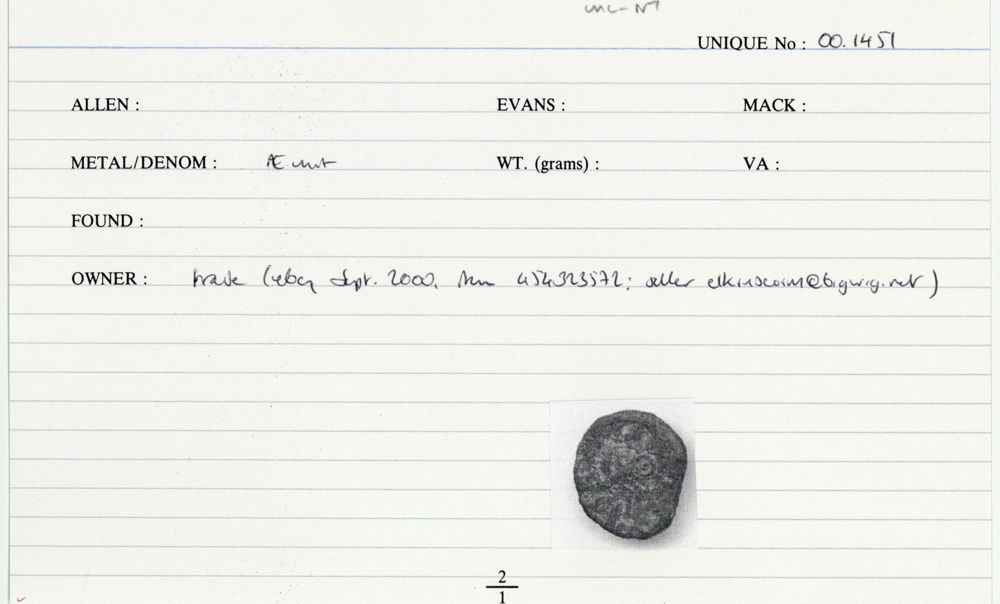 UNIQUE No : 00.1451
ALLEN : EVANS : MACK :
METAL/DENOM : Æ unit WT. (grams) : VA :
FOUND :
OWNER : trade (eBay Sept. 2000, item 454323572; seller elkinscoin@bigwig.net)
2
1